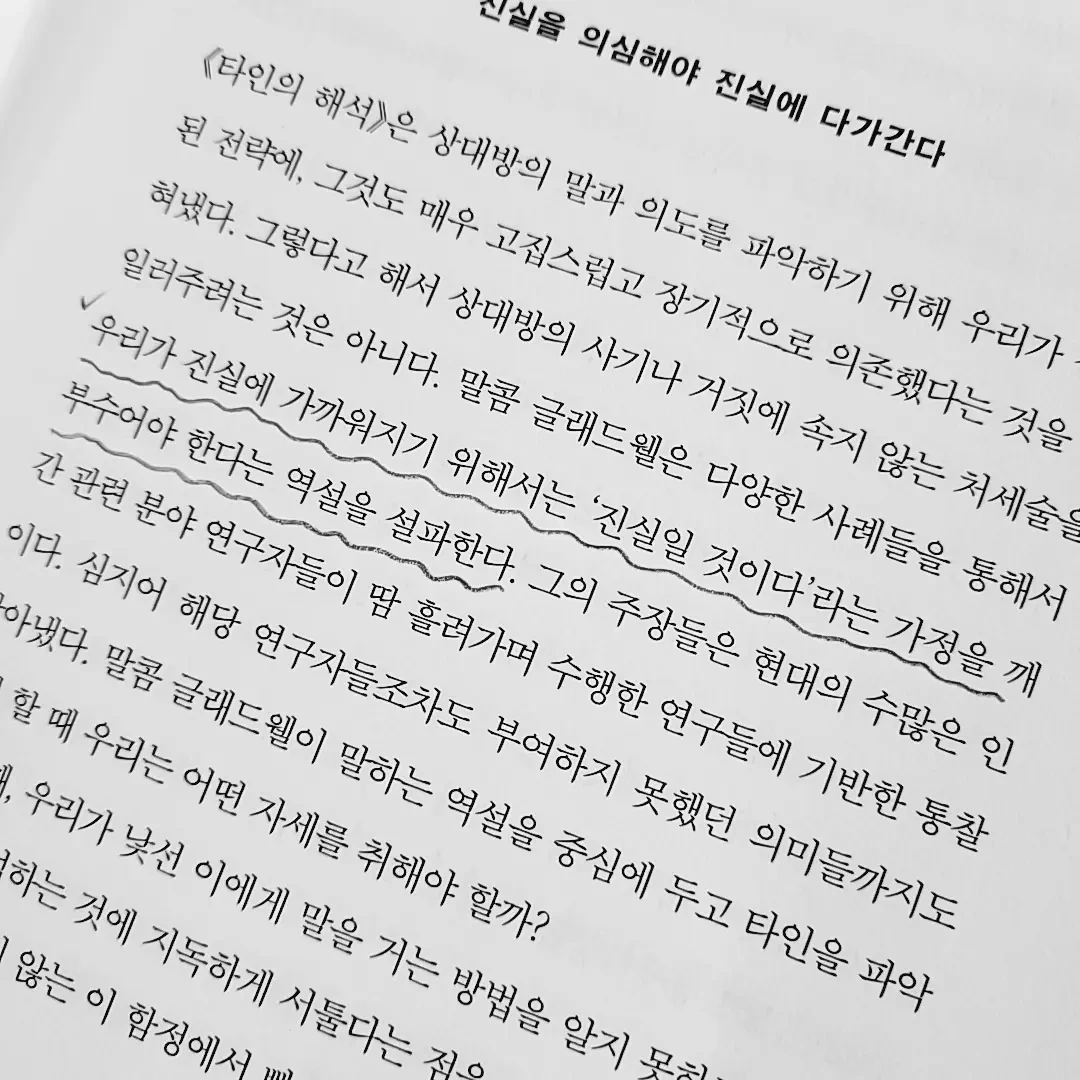 진실을 의심해야 진실에 다가간다
《타인의 해석》은 상대방의 말과 의도를 파악하기 위해 우리가
된 전략에, 그것도 매우 고집스럽고 장기적으로 의존했다는 것을
혀냈다. 그렇다고 해서 상대방의 사기나 거짓에 속지 않는 처세술을
일러주려는 것은 아니다. 말콤 글래드웰은 다양한 사례들을 통해서
우리가 진실에 가까워지기 위해서는 ‘진실일 것이다’라는 가정을 깨
부수어야 한다는 역설을 설파한다. 그의 주장들은 현대의 수많은 인
간 관련 분야 연구자들이 땀 흘려가며 수행한 연구들에 기반한 통찰
이다. 심지어 해당 연구자들조차도 부여하지 못했던 의미들까지도
아냈다. 말콤 글래드웰이 말하는 역설을 중심에 두고 타인을 파악
할 때 우리는 어떤 자세를 취해야 할까?
우리가 낯선 이에게 말을 거는 방법을 알지
하는 것에 지독하게 서툴다는 점을
않는 이 함정에서